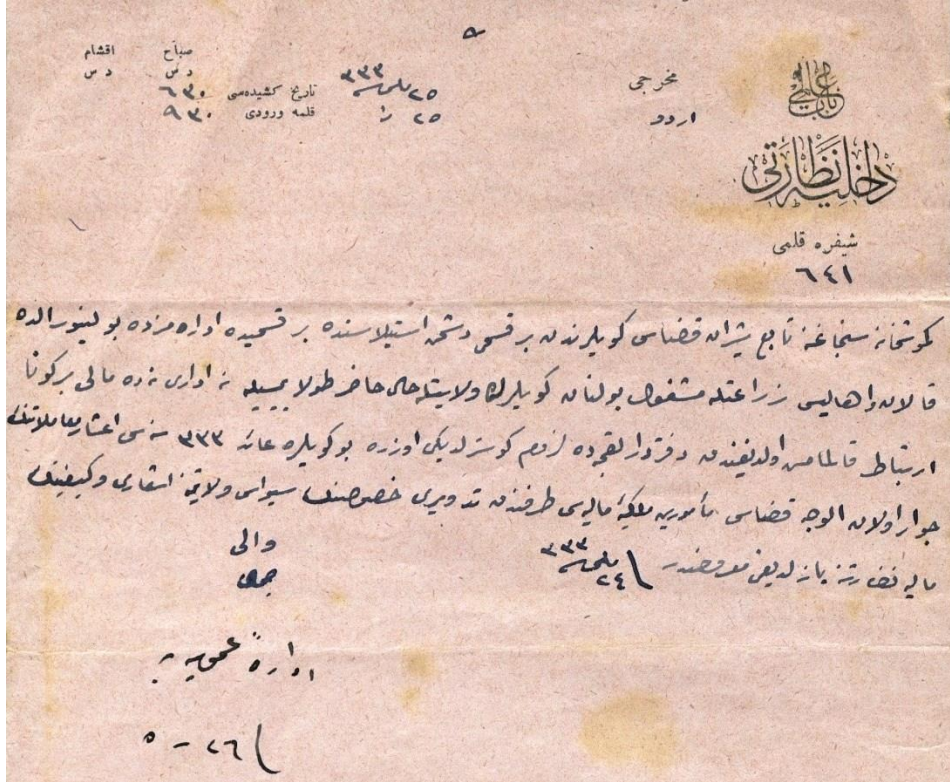 باب عالی
داخلیه نظارتی
شیفره قلمی
٦٤١
مخرجی
اردو
صباح اقشام
د س د س
تاریخ كشیده‌سی ٦٣٠
قلمه ورودی ٩٣٠
٢٥ مایس ٣٣٣
٢٥
كموشخانه سنجاغنه تابع شیران قضاسی كویلرندن بر قسمی دشمن استیلاسنده بر قسمیده اداره مزده بولنیور الده
قالان اهالیسی زراعتله مشغول بولنان كویلرك ولایتله حال حاضر طولاییسیله نه اداری نه ده مالی بر كونا
ارتباط قالمامش اولدیغندن دفتردارلقجه ده لزوم كوسترلدیكی اوزره بو كویلره عائد ٣٣٣ سنه سی اعشار معاملاتنك
جوار اولان الوجه قضاسی مأمورین ملكیه مالیه سی طرفندن تدویری خصوصنك سیواس ولایتنه اشعاری وكیفیتك
مالیه نظارتنه یازلدیغی معروضدر ٢٤ مایس ٣٣٣
والی
اداره عمومیه یه
٢٦ - ٥